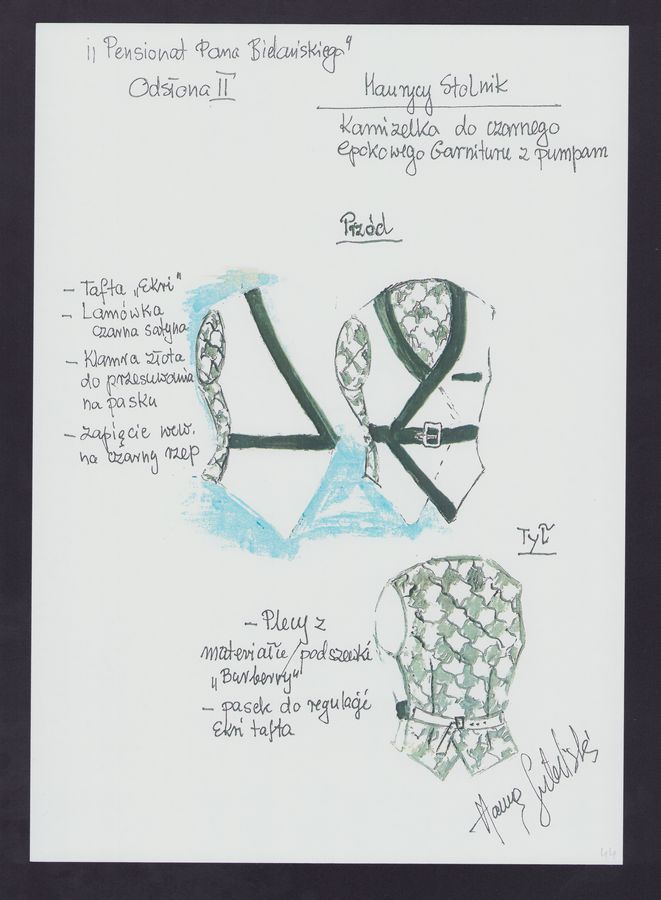 „Pensionat Pana Bielańskiego"
Odsłona II
Maurycy Stolnik
Kamizelka do czarnego
epokowego Garnituru z pumpam
Przód
- Tafta „Ekri"
- Lamówka
czarna satyna
- Klamra złota
do przesuwania
na pasku
- zapięcie wew.
na czarny rzep
Tył
- Plecy z
materiału/podszewki
„Barberry"
- pasek do regulacji
Ekri tafta
44